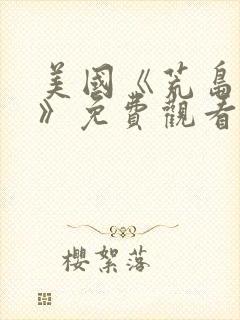 美國《荒島
》免費觀看
櫻絮落